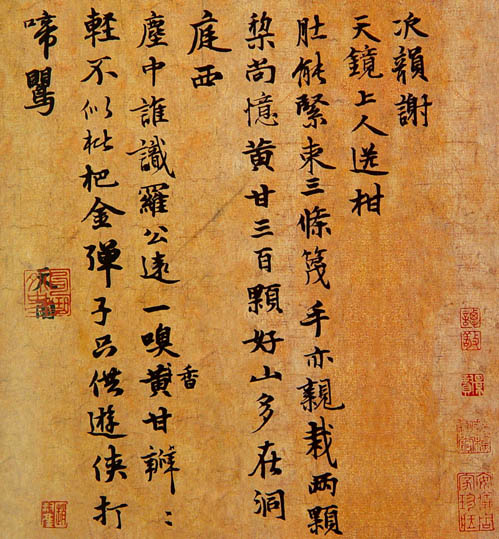 次韻謝
天鏡上人送柑
肚能緊束三條篾手亦親栽兩顆
梨尚憶黄甘三百顆好山多在洞
庭西
塵中誰識羅公遠一嗅黄甘香瓣〻
輕不似枇杷金彈子只供遊俠打
啼鶯
譚敬
安儀周家珍藏